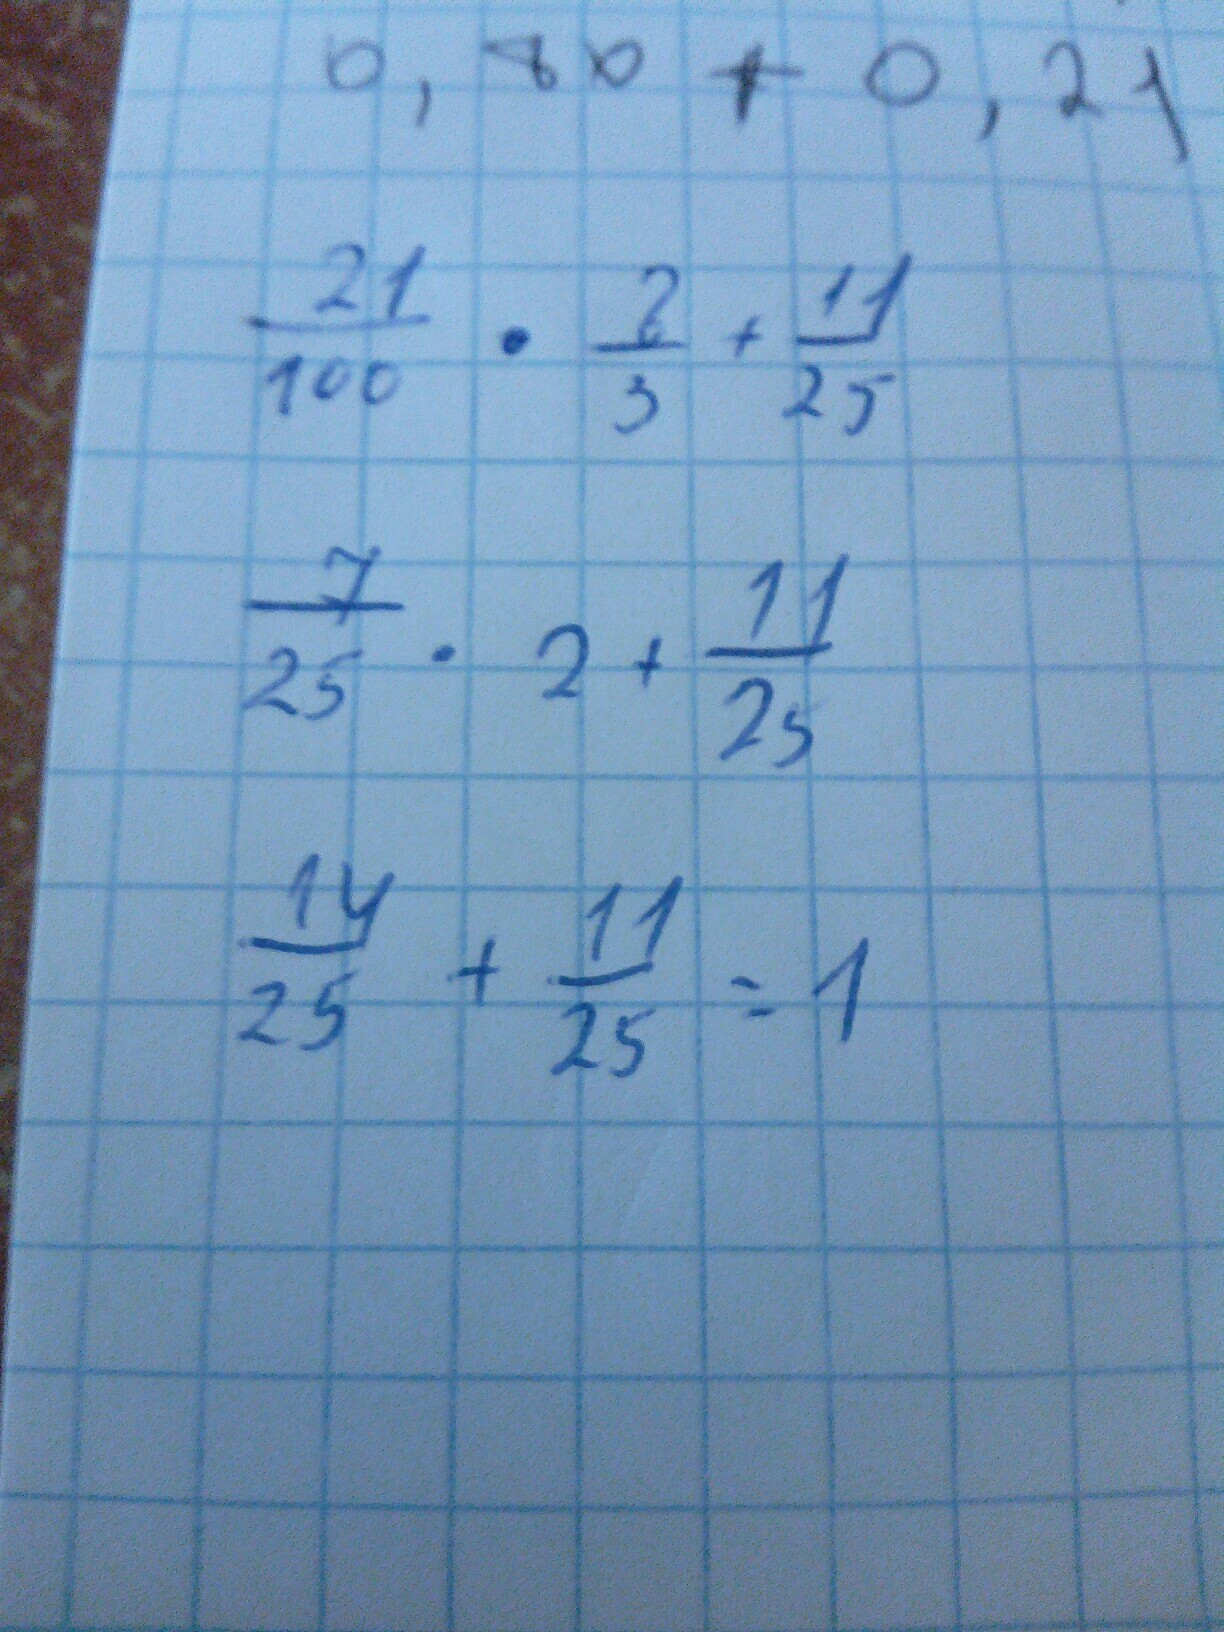 0,80 + 0,21
21/100 · 8/3 + 11/25
7/25 · 2 + 11/25
14/25 + 11/25 = 1